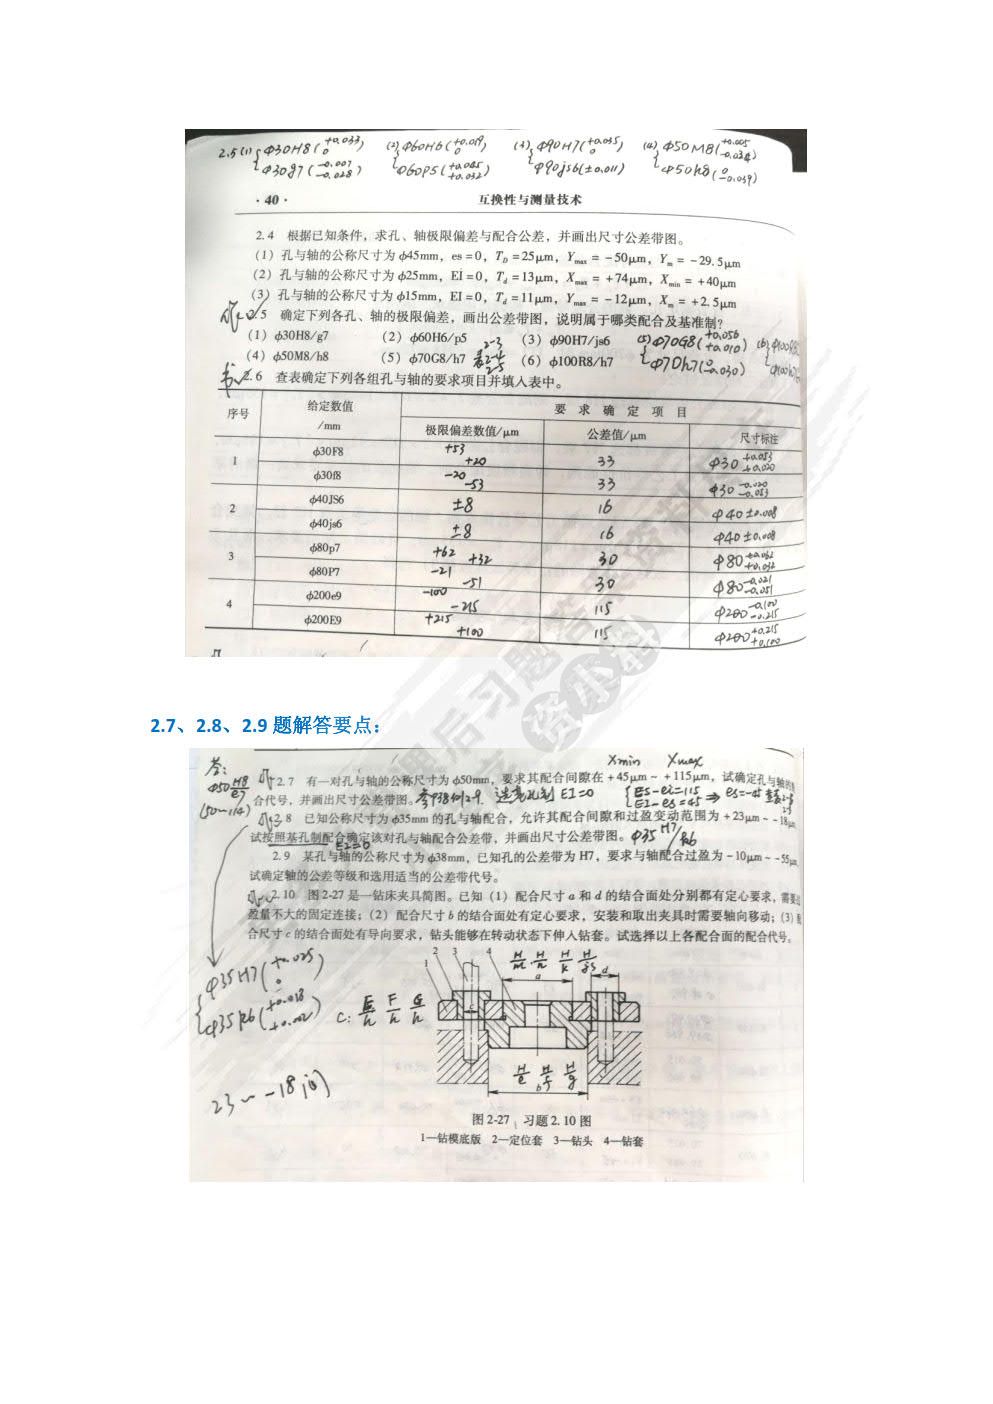 2.5 (1) { Φ30H8(+0.033 0) (2) { Φ60H6(+0.019 0) (3) { Φ90H7(+0.035 0) (4) { Φ50M8(+0.005 -0.034)
Φ30g7(-0.007 -0.028) Φ60p5(+0.045 +0.032) Φ90js6(±0.011) Φ50h8(0 -0.039)
·40· 互换性与测量技术
2.4 根据已知条件，求孔、轴极限偏差与配合公差，并画出尺寸公差带图。
(1) 孔与轴的公称尺寸为 ϕ45mm，es = 0，T_D = 25μm，Y_max = -50μm，Y_m = -29.5μm
(2) 孔与轴的公称尺寸为 ϕ25mm，EI = 0，T_d = 13μm，X_max = +74μm，X_min = +40μm
(3) 孔与轴的公称尺寸为 ϕ15mm，EI = 0，T_d = 11μm，Y_max = -12μm，X_m = +2.5μm
2.5 确定下列各孔、轴的极限偏差，画出公差带图，说明属于哪类配合及基准制?
(1) ϕ30H8/g7 (2) ϕ60H6/p5 2-3 (3) ϕ90H7/js6 (5) { Φ70G8(+0.056 +0.010) (6) { Φ100R8
(4) ϕ50M8/h8 (5) ϕ70G8/h7 表2-4 2-5 (6) ϕ100R8/h7 Φ70h7(0 -0.030) Φ100h7
2.6 查表确定下列各组孔与轴的要求项目并填人表中。
序号 给定数值/mm 要求确定项目
极限偏差数值/μm 公差值/μm 尺寸标注
1 ϕ30F8 +53 +20 33 Φ30 +0.053 +0.020
ϕ30f8 -20 -53 33 Φ30 -0.020 -0.053
2 ϕ40JS6 ±8 16 Φ40±0.008
ϕ40js6 ±8 16 Φ40±0.008
3 ϕ80p7 +62 +32 30 Φ80 +0.062 +0.032
ϕ80P7 -21 -51 30 Φ80 -0.021 -0.051
4 ϕ200e9 -100 -215 115 Φ200 -0.100 -0.215
ϕ200E9 +215 +100 115 Φ200 +0.215 +0.100
2.7、2.8、2.9 题解答要点：
Xmin Xmax
答: 2.7 有一对孔与轴的公称尺寸为 ϕ50mm，要求其配合间隙在 +45μm ~ +115μm，试确定孔与轴的
Φ50 H8/e7 合代号，并画出尺寸公差带图。参P38例2-9. 选基孔制 EI=0 { ES-ei=115 EI-es=45 ⇒ es=-45 查表
2.8 已知公称尺寸为 ϕ35mm 的孔与轴配合，允许其配合间隙和过盈变动范围为 +23μm ~ -18μm，
试按照基孔制配合确定该对孔与轴配合公差带，并画出尺寸公差带图。Φ35 H7/k6
EI=0
2.9 某孔与轴的公称尺寸为 ϕ38mm，已知孔的公差带为 H7，要求与轴配合过盈为 -10μm ~ -55μm，
试确定轴的公差等级和选用适当的公差带代号。
2.10 图 2-27 是一钻床夹具简图。已知 (1) 配合尺寸 a 和 d 的结合面处分别都有定心要求，需要过
盈量不大的固定连接；(2) 配合尺寸 b 的结合面处有定心要求，安装和取出夹具时需要轴向移动；(3) 配
合尺寸 c 的结合面处有导向要求，钻头能够在转动状态下伸人钻套。试选择以上各配合面的配合代号。
1 2 3 4 H/m H/n H/k H/js
a d
{ Φ35H7(+0.025 0)
Φ35k6(+0.018 +0.002)
C: E/h F/h G/h
c
H/e H/f H/g
b
23~-18间
图 2-27 习题 2.10 图
1—钻模底版 2—定位套 3—钻头 4—钻套